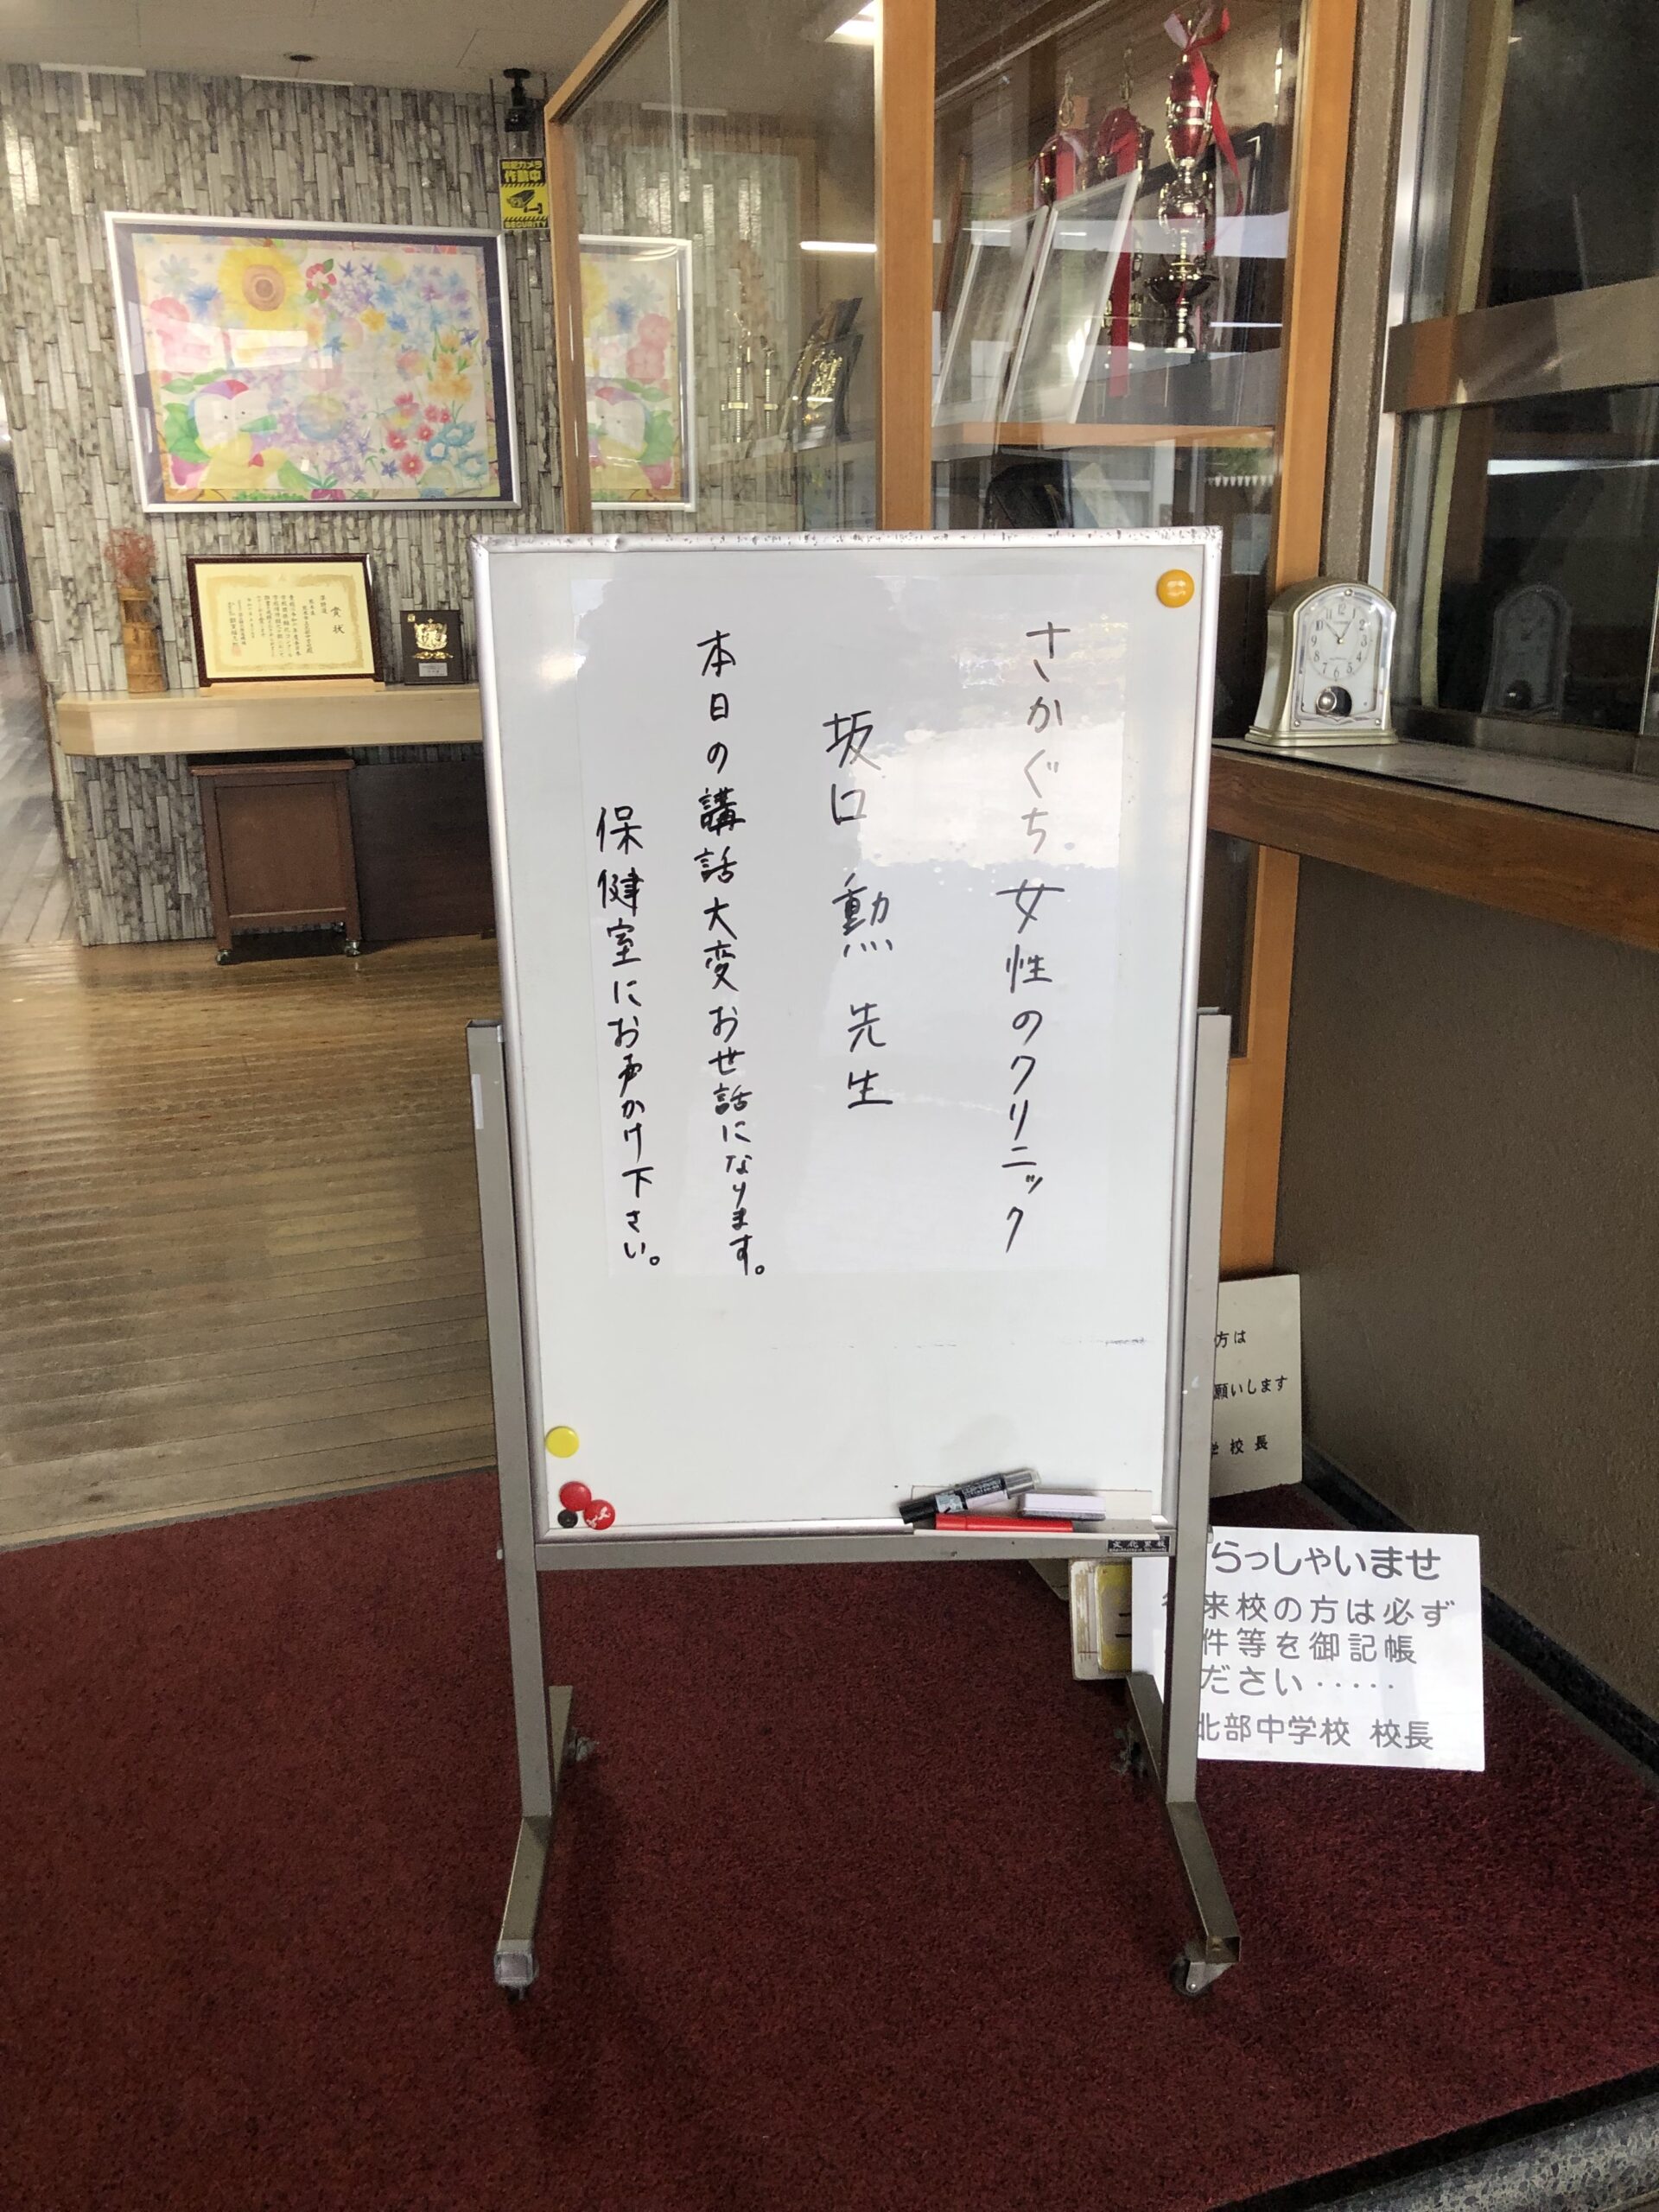 さかぐち女性のクリニック
坂口 勲 先生
本日の講話大変お世話になります。
保健室にお声かけ下さい。
作動中
SECURITY
賞状
方は
願いします
校長
らっしゃいませ
来校の方は必ず
件等を御記帳
ださい・・・・・
北部中学校 校長